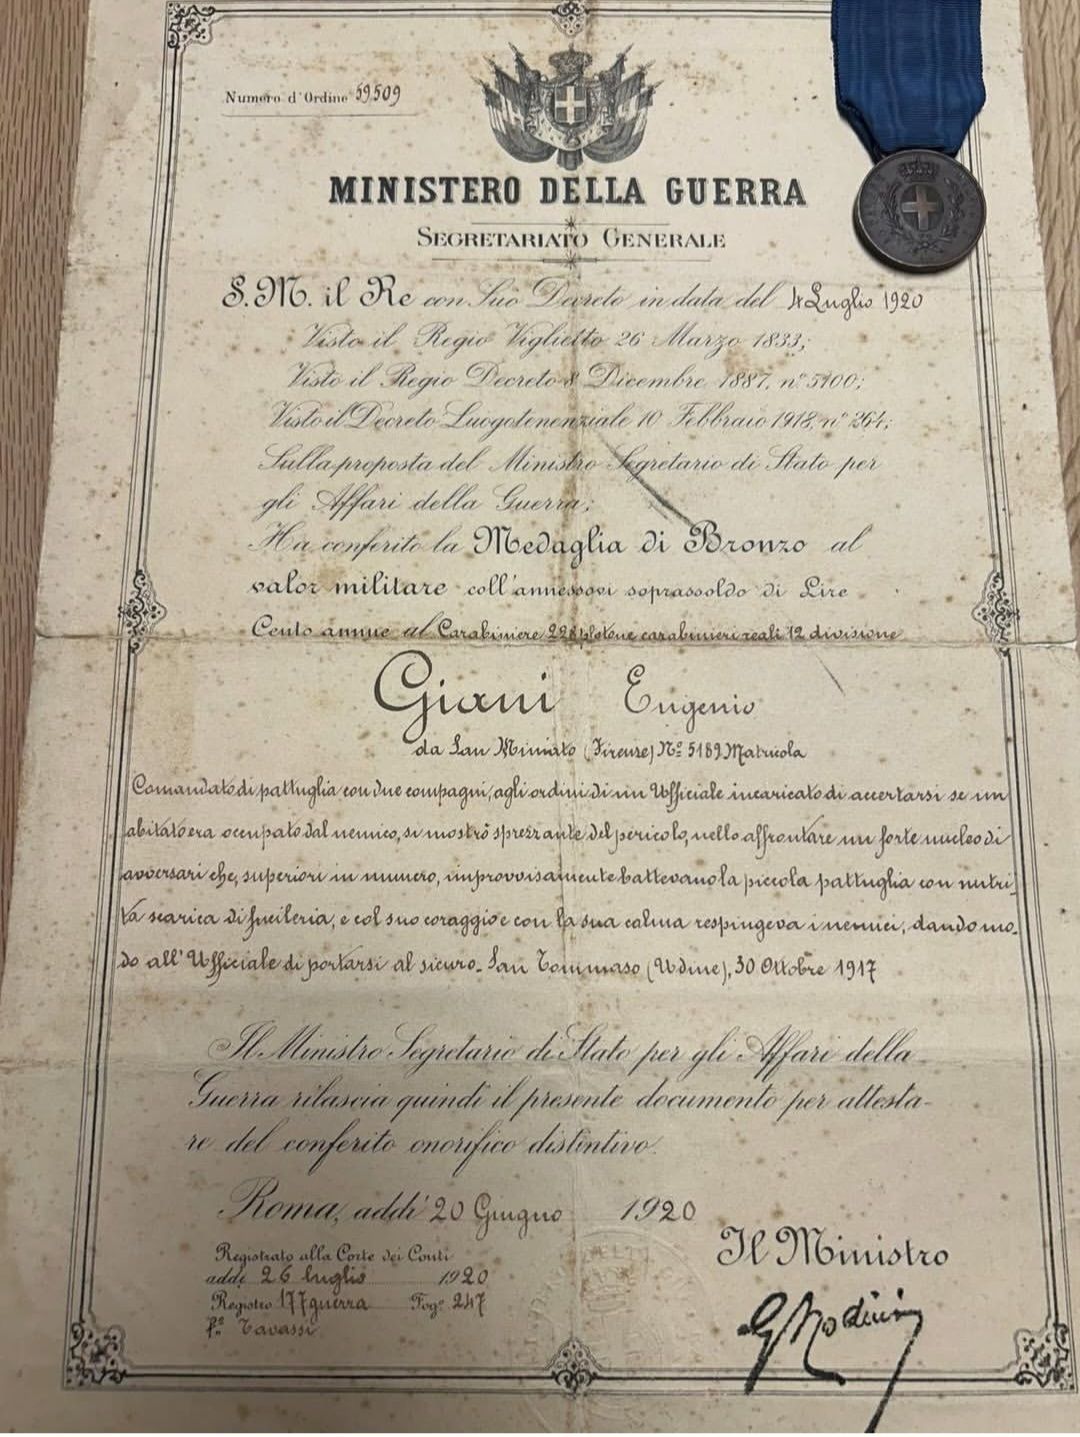 Numero d'Ordine 59509
MINISTERO DELLA GUERRA
SEGRETARIATO GENERALE
S. M. il Re con Suo Decreto in data del 4 Luglio 1920
Visto il Regio Viglietto 26 Marzo 1833;
Visto il Regio Decreto 8 Dicembre 1887, n° 5100;
Visto il Decreto Luogotenenziale 10 Febbraio 1918, n° 264;
Sulla proposta del Ministro Segretario di Stato per
gli Affari della Guerra;
Ha conferito la Medaglia di Bronzo al
valor militare coll'annessovi soprassoldo di Lire
Cento annue al Carabiniere 228 plotone carabinieri reali 12 divisione
Giani Eugenio
da San Miniato (Firenze) N° 5189 Matricola
Comandato di pattuglia con due compagni, agli ordini di un Ufficiale incaricato di accertarsi se un
abitato era occupato dal nemico, si mostrò sprezzante del pericolo, nello affrontare un forte nucleo di
avversari che, superiori in numero, improvvisamente battevano la piccola pattuglia con nutri-
ta scarica di fucileria, e col suo coraggio e con la sua calma respingeva i nemici, dando mo-
do all'Ufficiale di portarsi al sicuro. San Tommaso (Udine), 30 Ottobre 1917
Il Ministro Segretario di Stato per gli Affari della
Guerra rilascia quindi il presente documento per attesta-
re del conferito onorifico distintivo.
Roma, addì 20 Giugno 1920
Il Ministro
Registrato alla Corte dei Conti
addì 26 luglio 1920
Registro 177 guerra Fog° 247
f° Tavassi